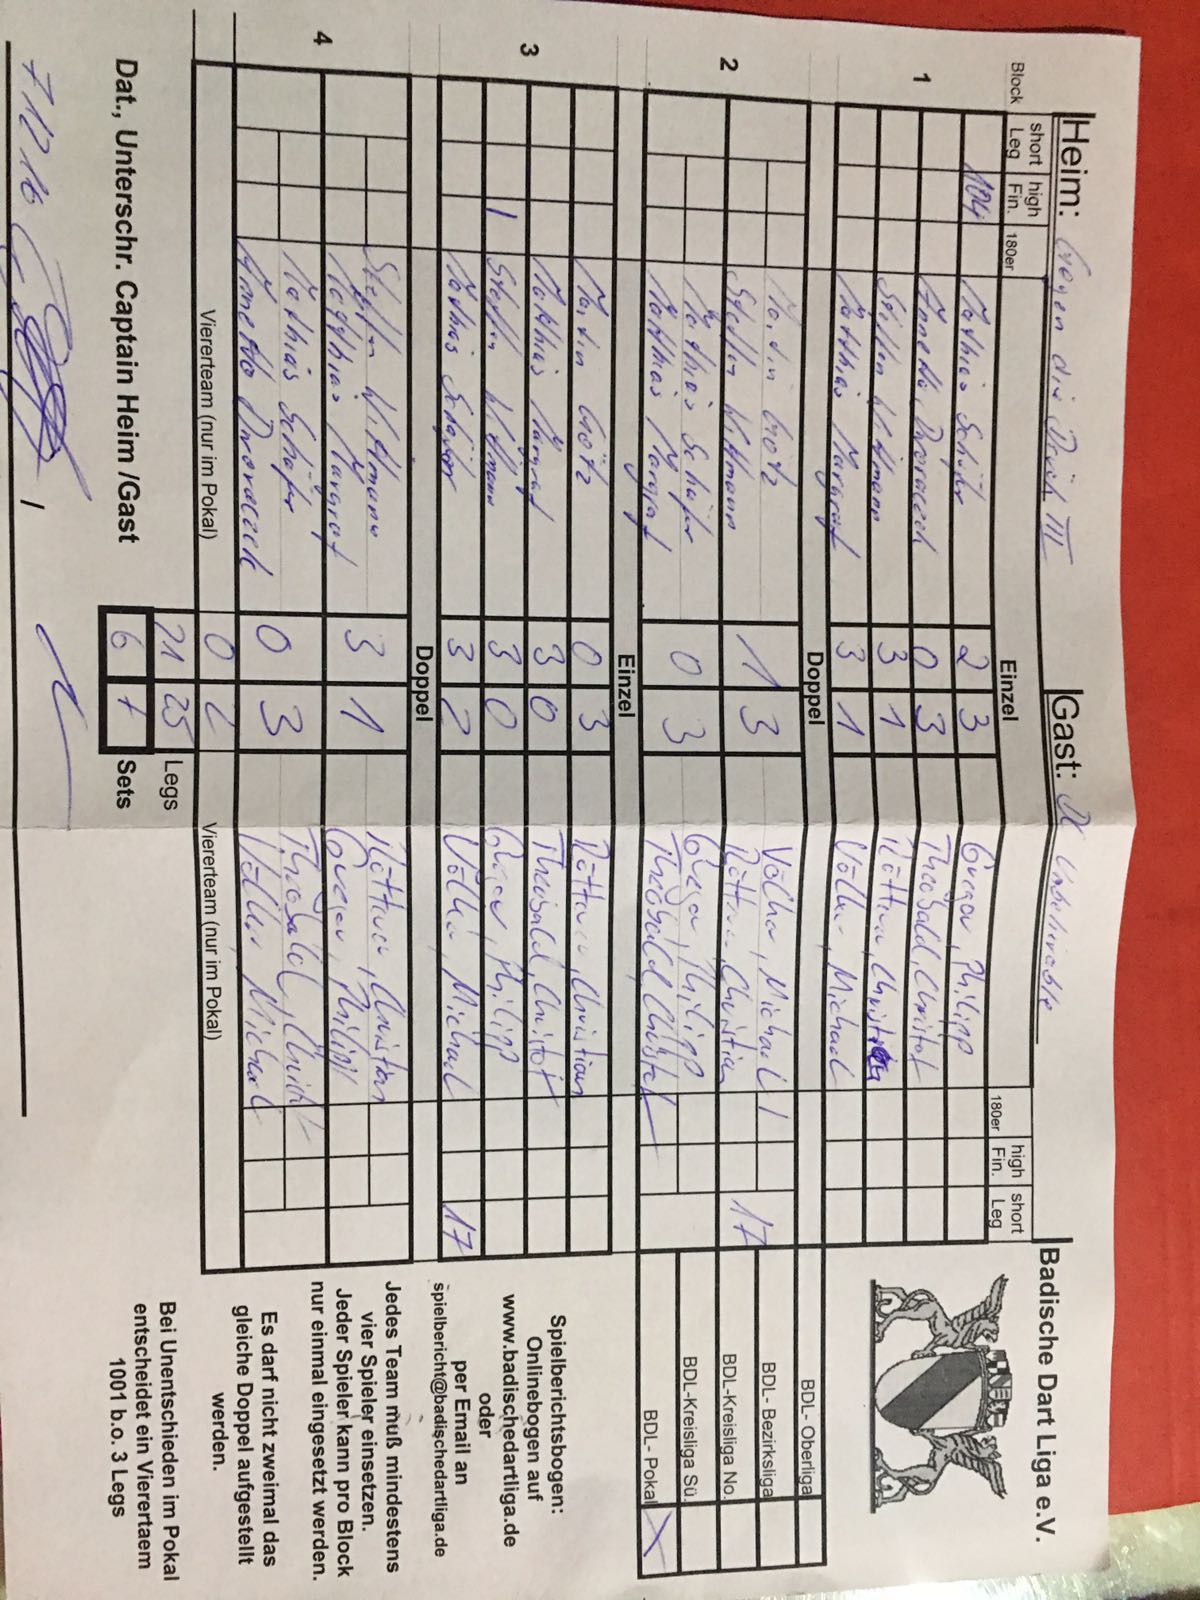 Heim: Gegen die Deich III Gast: DC Unbehirable Badische Dart Liga e.V.
Block short Leg high Fin. 180er Einzel 180er high Fin. short Leg
1 104 Mathias Schäfer 2 3 Geiger, Philipp
Annette 0 3 Theobald, Christof
Steffen Wittmann 3 1 Röttner, Christian
Matthias Margraf 3 1 Völker, Michael
Doppel
2 Martin Götz 1 3 Völker, Michael 1
Steffen Wittmann Röttner, Christian 17
Mathias Schäfer 0 3 Geiger, Philipp
Matthias Margraf Theobald, Christof
Einzel
3 Martin Götz 0 3 Röttner, Christian
Matthias Margraf 3 0 Theobald, Christof
1 Steffen Wittmann 3 0 Geiger, Philipp
Mathias Schäfer 3 2 Völker, Michael 17
Doppel
4 Steffen Wittmann 3 1 Röttner, Christian
Matthias Margraf Geiger, Philipp
Mathias Schäfer 0 3 Theobald, Christof
Annette Völker Michael
Viererteam (nur im Pokal) 0 2 Viererteam (nur im Pokal)
21 25 Legs
Dat., Unterschr. Captain Heim /Gast 6 7 Sets
7 12 16 /
BDL- Oberliga
BDL- Bezirksliga
BDL-Kreisliga No.
BDL-Kreisliga Sü.
BDL- Pokal X
Spielberichtsbogen:
Onlinebogen auf
www.badischedartliga.de
oder
per Email an
spielbericht@badischedartliga.de
Jedes Team muß mindestens
vier Spieler einsetzen.
Jeder Spieler kann pro Block
nur einmal eingesetzt werden.
Es darf nicht zweimal das
gleiche Doppel aufgestellt
werden.
Bei Unentschieden im Pokal
entscheidet ein Vierertaem
1001 b.o. 3 Legs